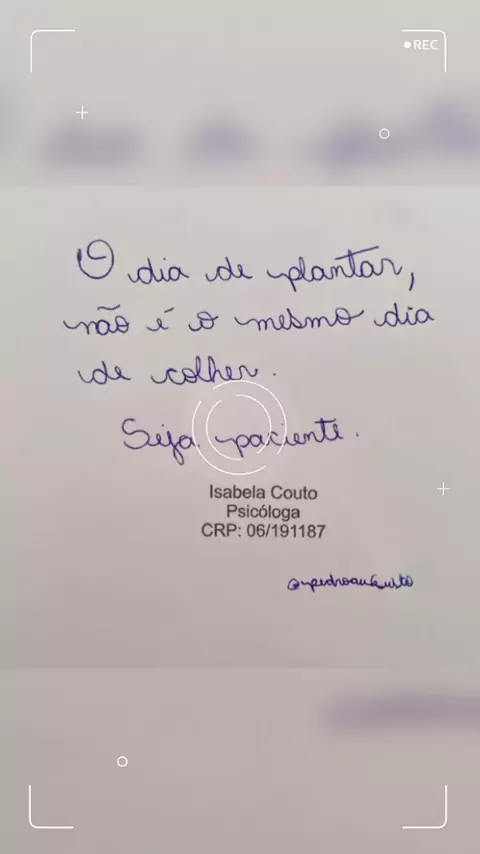 REC
O dia de plantar,
não é o mesmo dia
de colher.
Seja paciente.
Isabela Couto
Psicóloga
CRP: 06/191187